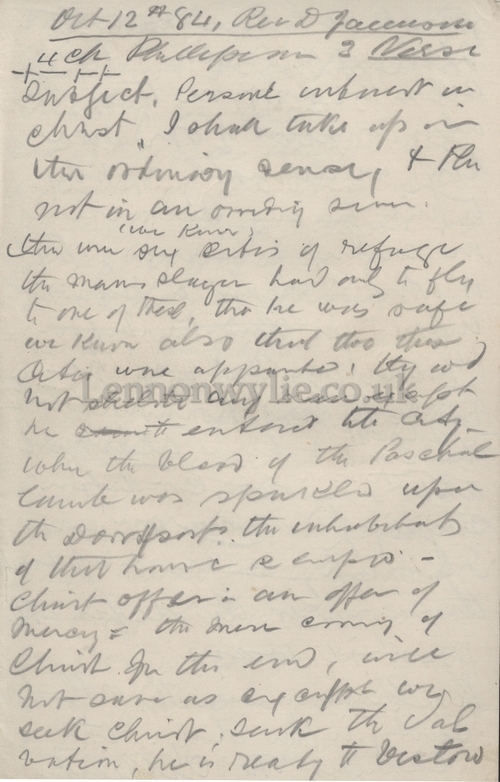 Oct 12th 84, Rev D Jamison
4 Ch Phillipian 3 Verse
Subject. Personl interest in
Christ, I shall take up in
the ordinary sense, & then
not in an ordiny sense.
(we know)
ther were six Citis of refuge
the manslayer had only to fly
to one of these, than he was safe
we know also that tho these
Citys were appointed, they wod
not shelter any man except
he entered the City.
when the blood of the Paschal
lamb was sprinkled upon
the doorposts. the inhabitants
of that house escaped -
Christ offer is an offer of
Mercy = the mere coming of
Christ for this end, will
not save us except we
seek Christ, seek the Sal
vation, he is ready to bestow
Lennonwylie.co.uk